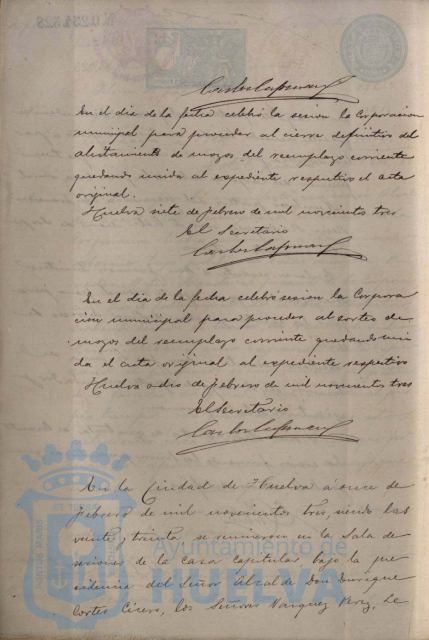 N. 0.234.528
Carlos Casman
En el dia de la fecha celebró la sesion la Corporacion
municipal para proceder al cierre definitivo del
alistamiento de mozos del reemplazo corriente
quedando unida al expediente respectivo el acta
original.
Huelva siete de febrero de mil novecientos tres
El Secretario
En el dia de la fecha celebró sesion la Corpora
cion municipal para proceder al sorteo de
mozos del reemplazo corriente quedando uni
da el acta original al expediente respectivo
Huelva ocho de febrero de mil novecientos tres
El Secretario
En la Ciudad de Huelva a once de
Febrero de mil novecientos tres, siendo las
veinte y treinta, se reunieron en la Sala de
sesiones de la casa Capitular, bajo la pre
sidencia del Señor Alcalde Don Enrique
Cortes Cicero, los Señores Vazquez Perez, Le
Ayuntamiento de
HUELVA